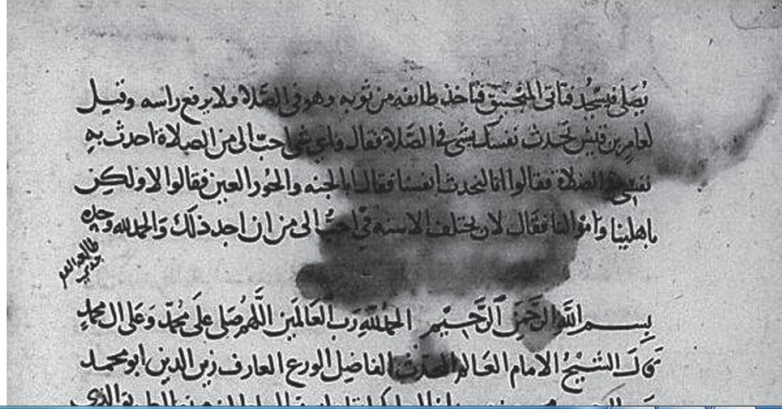 يصلي فيسجد فتاتي المنجنيق فتاخذ طائفه من ثوبه وهو في الصلاة ولا يرفع راسه وقيل
لعامر بن قيس تحدث نفسك بشي في الصلاة فقال واي شي احب الي من الصلاة احدث به
نفسي في الصلاة فقالوا انا لنحدث انفسنا فقال ابالجنه والحور العين فقالوا لا ولكن
باهلينا واموالنا فقال لان يختلف الاسنه في احب الي من ان اجد ذلك والحمد لله وحده
بسم الله الرحمن الرحيم الحمد لله رب العالمين اللهم صل على محمد وعلى ال محمد
قال الشيخ الامام العالم المحدث الفاضل الورع العارف زين الدين ابو محمد